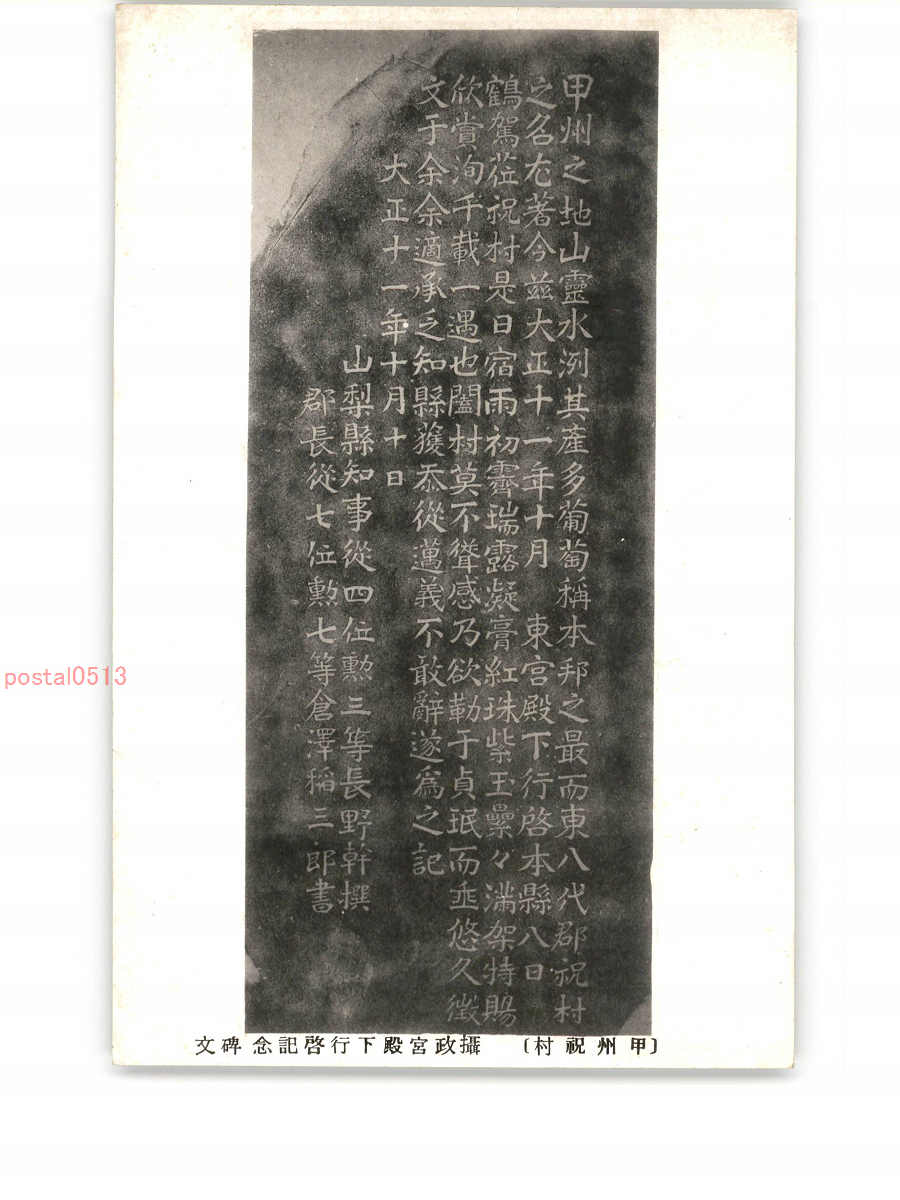 甲州之地山靈水洌其產多葡萄稱本邦之最而東八代郡祝村
之名尤著今茲大正十一年十月 東宮殿下行啓本縣八日
鶴駕莅祝村是日宿雨初霽瑞露凝膏紅珠紫玉纍々滿架特賜
欣賞洵千載一遇也闔村莫不聳感乃欲勒于貞珉而垂悠久徵
文于余余適承乏知縣獲忝從邁義不敢辭遂爲之記
大正十一年十月十日
山梨縣知事從四位勲三等長野幹撰
郡長從七位勲七等倉澤稲三郎書
〔甲州祝村〕 攝政宮殿下行啓記念碑文
postal0513